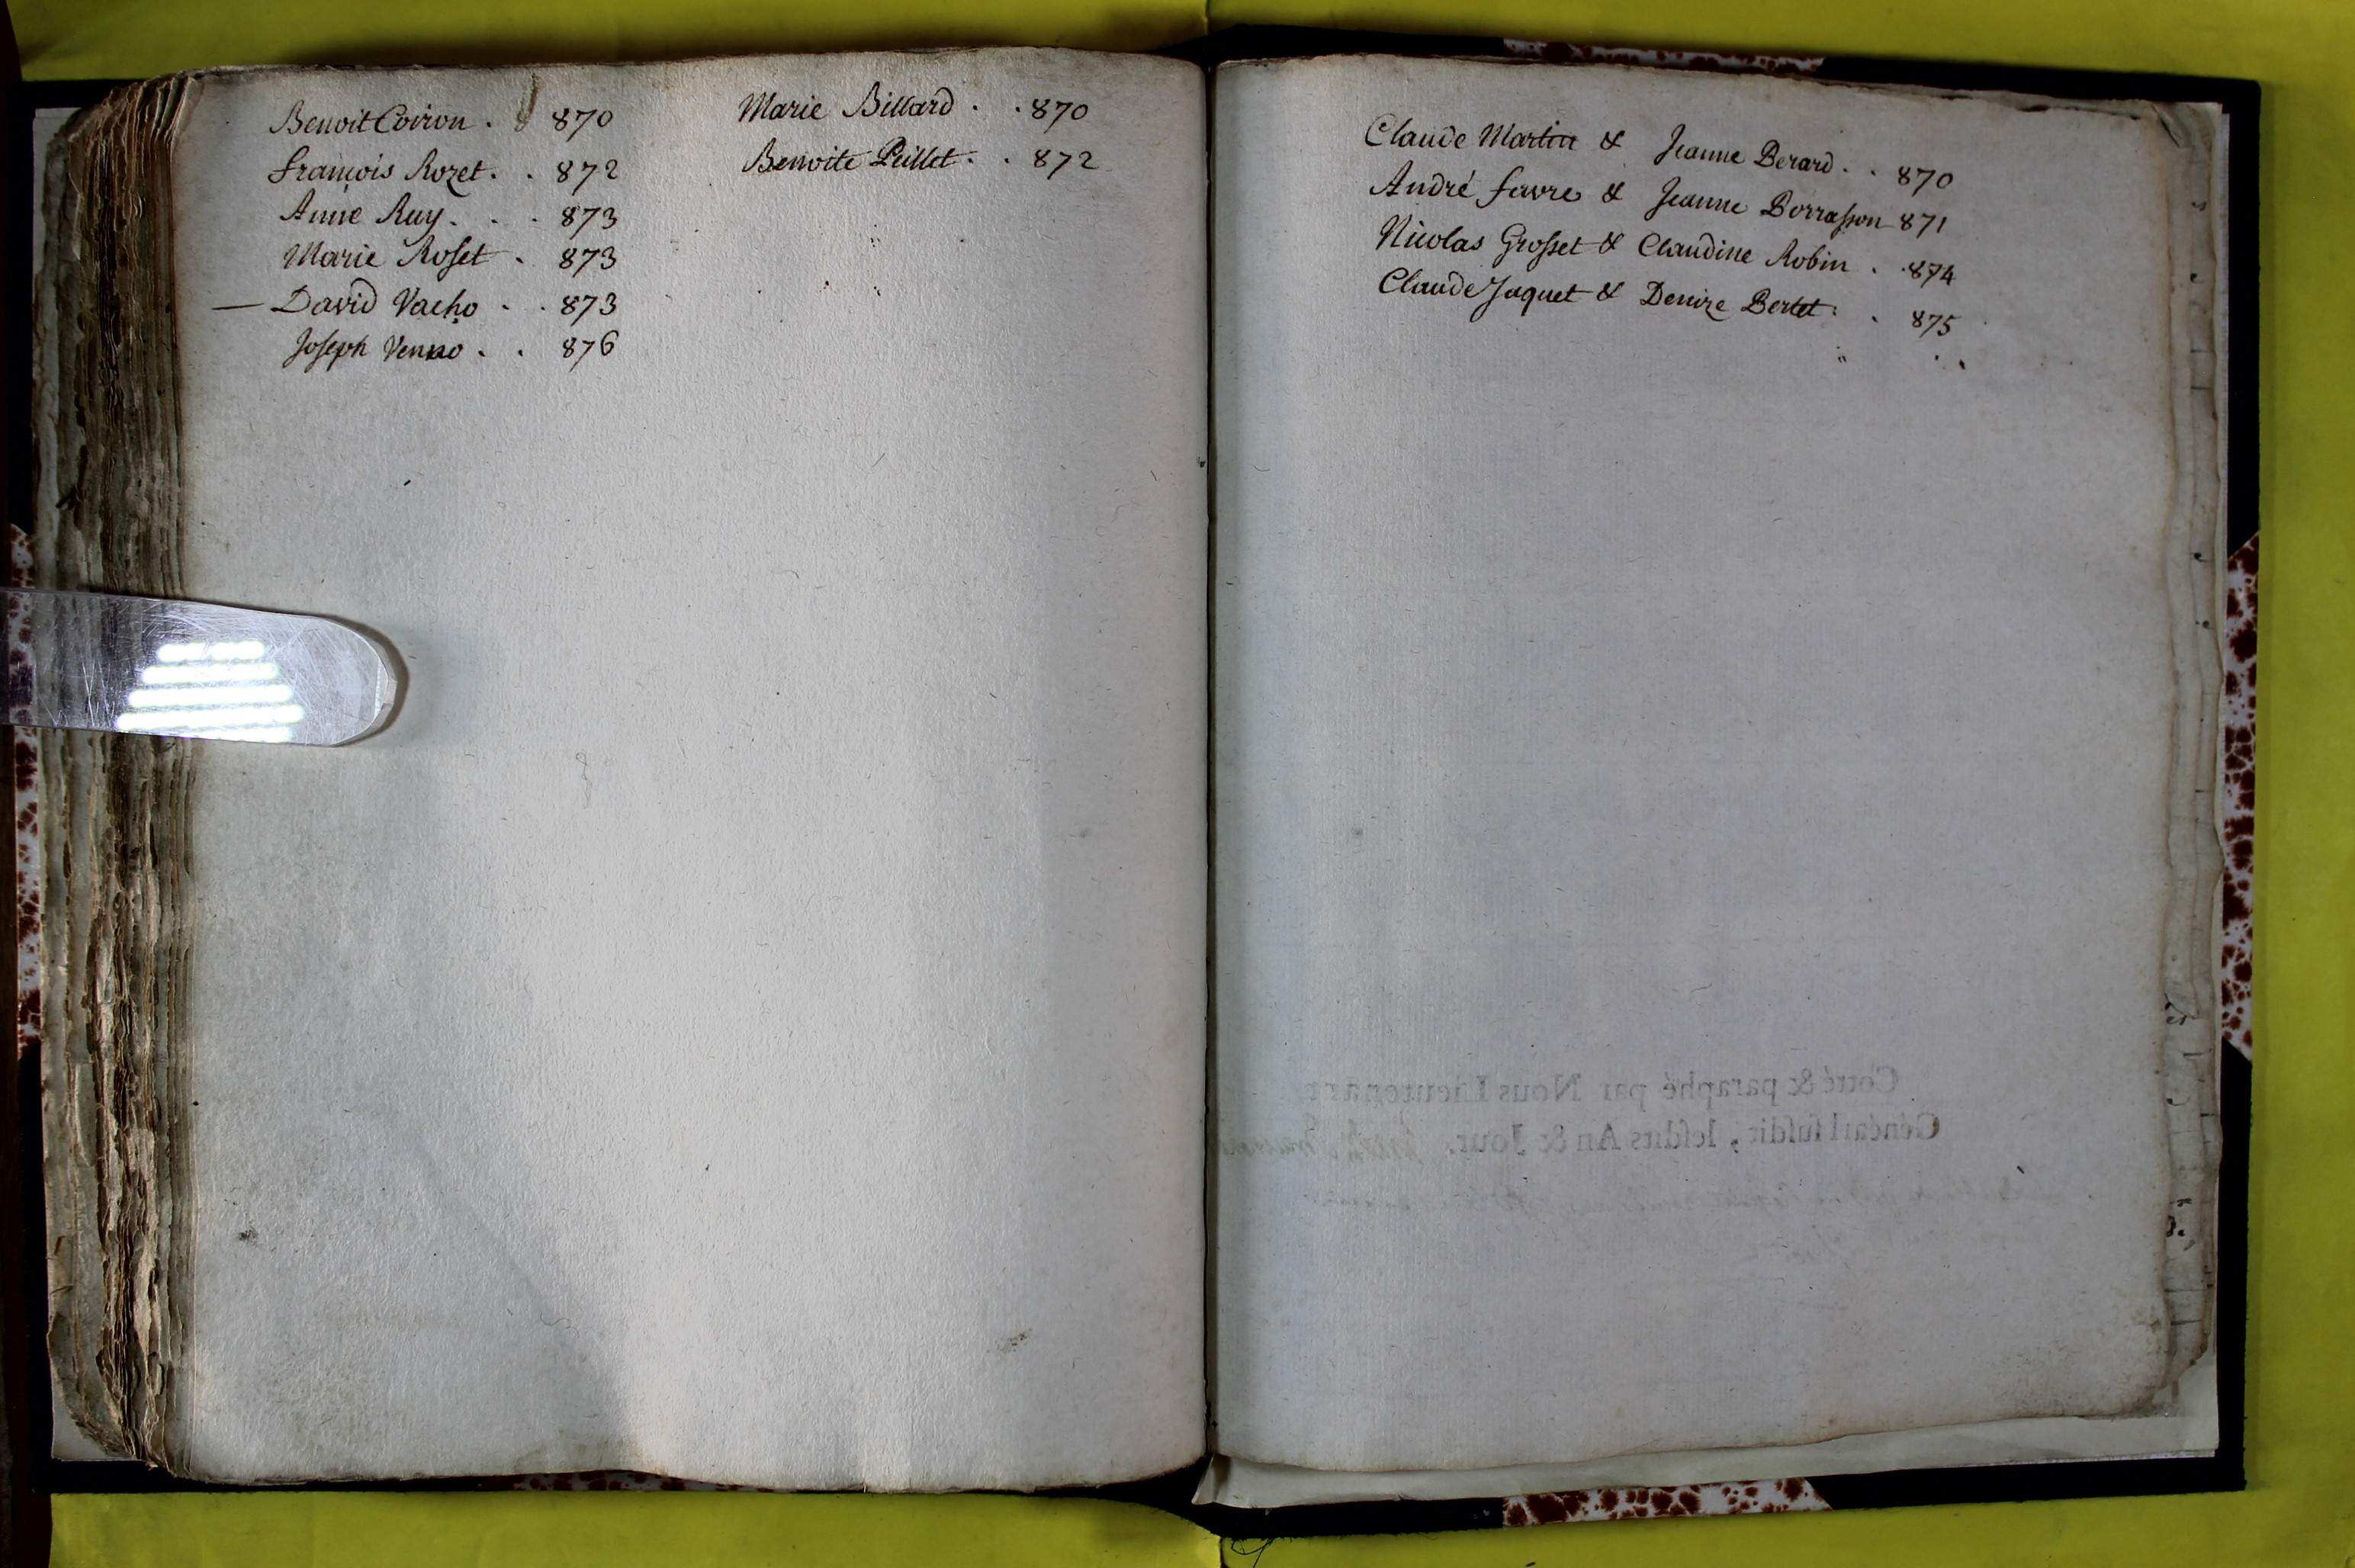 Benoit Coiron . 870
francois Rozet . . 872
Anne Ruy . . . 873
Marie Roset . 873
— David Vacho . . 873
Joseph Venno . . 876
Marie Billard . . 870
Benoite Peillet . . 872
Claude Martin & Jeanne Berard . . 870
André favre & Jeanne Borrasson 871
Nicolas Grosset & Claudine Robin . . 874
Claude Jaquet & Denize Bertet . . 875
Cotté & paraphé par Nous Lieutenant
Général susdit, lesdits An & Jour.